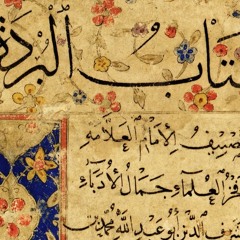 كتاب البردة
تصنيف الإمام العلامة
فخر العلماء جمال الأدباء
شرف الدين أبو عبد الله محمد بن